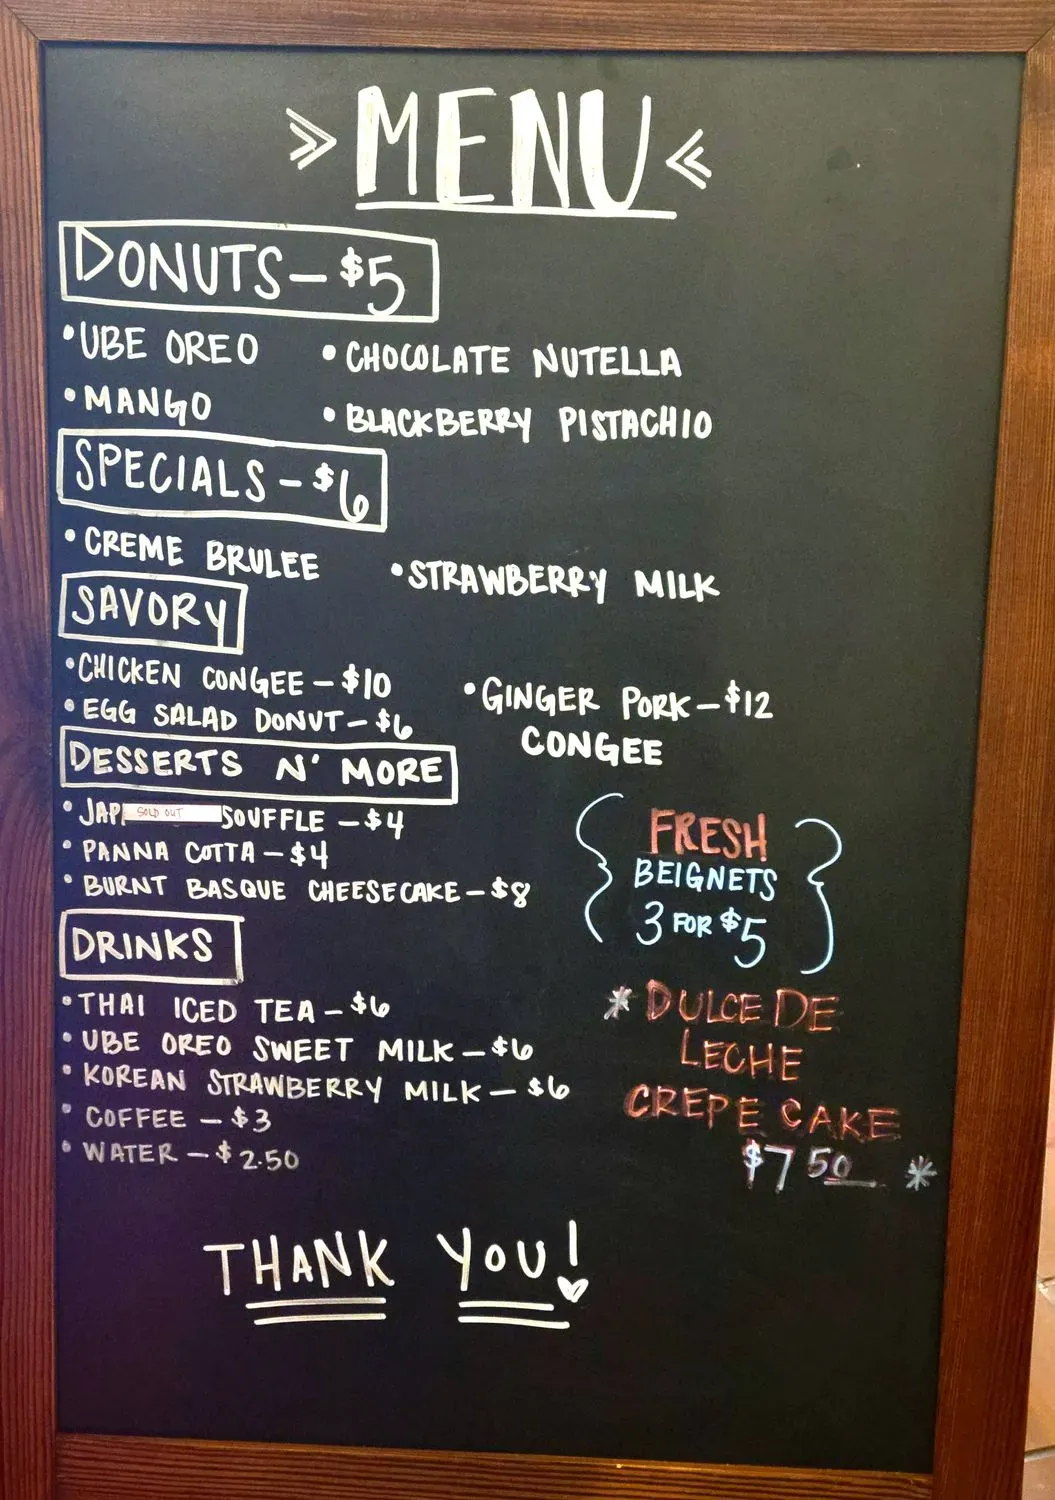 MENU
DONUTS - $5
• UBE OREO • CHOCOLATE NUTELLA
• MANGO • BLACKBERRY PISTACHIO
SPECIALS - $6
• CREME BRULEE • STRAWBERRY MILK
SAVORY
• CHICKEN CONGEE - $10
• EGG SALAD DONUT - $6
• GINGER PORK - $12
CONGEE
DESSERTS N' MORE
• JAP SOLD OUT SOUFFLE - $4
• PANNA COTTA - $4
• BURNT BASQUE CHEESECAKE - $8
FRESH
BEIGNETS
3 FOR $5
DRINKS
• THAI ICED TEA - $6
• UBE OREO SWEET MILK - $6
• KOREAN STRAWBERRY MILK - $6
• COFFEE - $3
• WATER - $2.50
* DULCE DE
LECHE
CREPE CAKE
$7 50 *
THANK YOU!